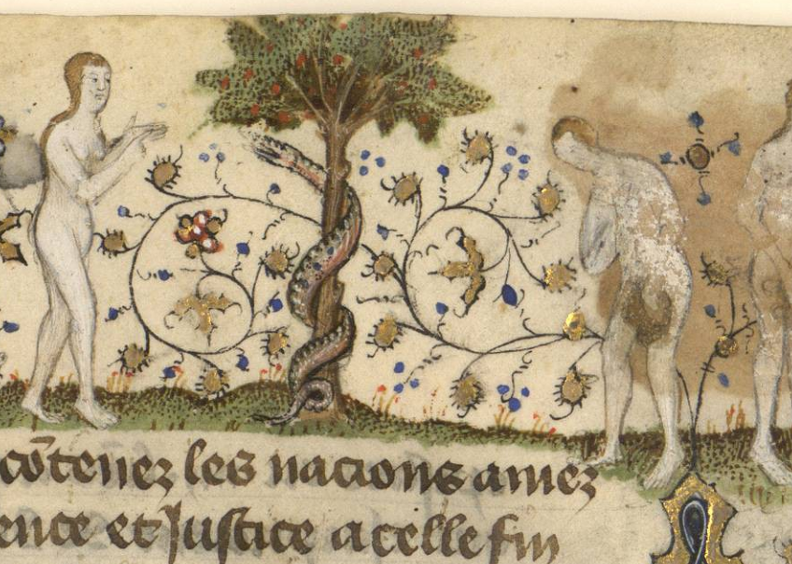 cõtenez les nacions amez
ence et Justice a celle fin